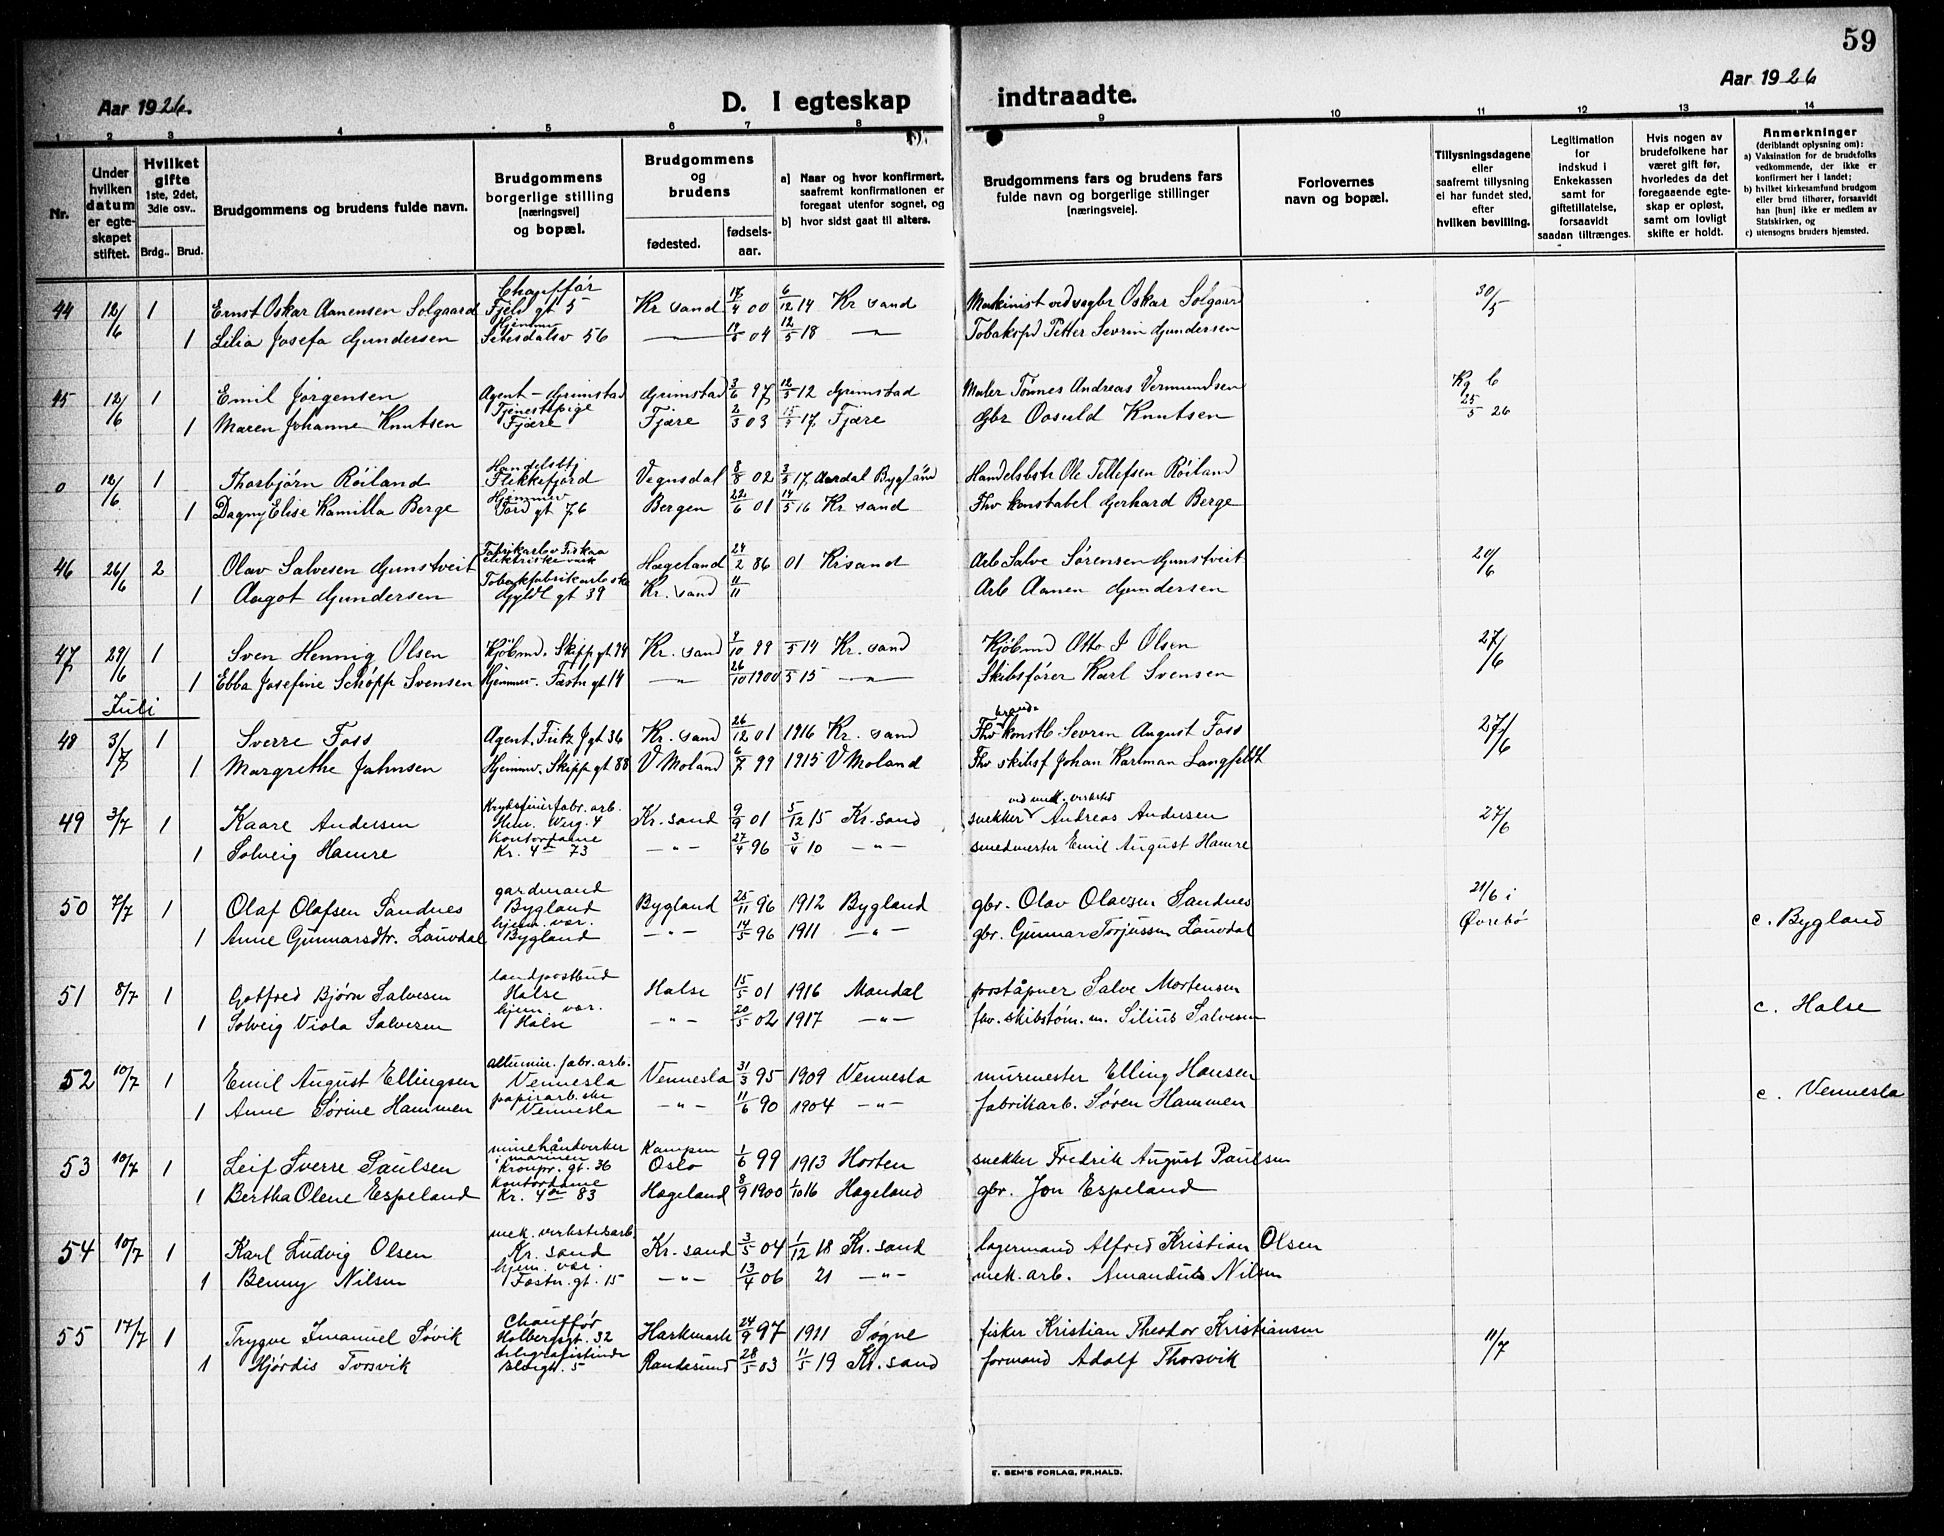 59
Aar 1926.
D. I egteskap indtraadte.
Aar 1926
1 2 3 4 5 6 7 8 9 10 11 12 13 14
Nr.
Under hvilken datum er egteskapet stiftet.
Hvilket gifte 1ste, 2det, 3die osv..
Brdg.. Brud.
Brudgommens og brudens fulde navn.
Brudgommens borgerlige stilling [næringsvei] og bopæl.
Brudgommens og brudens
fødested. fødsels-aar.
a) Naar og hvor konfirmert, saafremt konfirmationen er foregaat utenfor sognet, og
b) hvor sidst gaat til alters.
Brudgommens fars og brudens fars fulde navn og borgerlige stillinger [næringsveie].
Forlovernes navn og bopæl.
Tillysningsdagene eller saafremt tillysning ei har fundet sted, efter hvilken bevilling.
Legitimation for indskud i Enkekassen samt for giftetillatelse, forsaavidt saadan tiltrænges.
Hvis nogen av brudefolkene har været gift før, hvorledes da det foregaaende egteskap er opløst, samt om lovligt skifte er holdt.
Anmerkninger (deriblandt oplysning om):
a) Vaksination for de brudefolks vedkommende, der ikke er konfirmert her i landet;
b) hvilket kirkesamfund brudgom eller brud tilhører, forsaavidt han [hun] ikke er medlem av Statskirken, og
c) utensogns bruders hjemsted.
44 12/6 1 Ernst Oskar Aanensen Solgaard Chauffør Fjeld gt 5 Kr sand 17/4 00 6/12 14 Kr. sand Maskinist ved Oskar Solgaard 30/5
1 Lilia Josefa Gundersen Hjemmev Setesdalsv 56 — 14/5 04 12/5 18 — Tobakspd Petter Sevrin Gundersen
45 12/6 1 Emil Jørgensen Agent - Grimstad Grimstad 3/6 97 12/5 12 Grimstad Maler Tønnes Andreas Vermundsen Kg 6
1 Maren Johanne Knutsen Tjenestepige Fjære Fjære 2/3 03 15/5 17 Fjære Gbr Oosuld Knutsen 25/5 26
0 12/6 1 Thorbjørn Röiland Handelsbtj Flekkefjord Vegusdal 8/8 02 3/5 17 Aardal Bygland Handelsbstr Ole Tellefsen Röiland
1 Dagny Elise Kamilla Berge Hjemmev Tord gt 76 Bergen 22/6 01 14/5 16 Kr sand Fhv konstabel Gerhard Berge
46 26/6 2 Olav Salvesen Gunstveit Fabrikarb v Fiskaa elektriske verk Hægeland 24/2 86 01 Krisand Arb Salve Sørensen Gunstveit 20/6
1 Aagot Gundersen Tobakfabrikarbske Gyldl gt 39 Kr. sand 11/11 Arb Aanen Gundersen
47 29/6 1 Sven Hennig Olsen Kjöbmd. Skipp gt 94 Kr. sand 9/10 99 /5 14 Kr. sand Kjöbmd Otto J Olsen 27/6
1 Ebba Josefine Schöpp Svensen Hjemmev. Fæstn gt 14 —"— 26/10 1900 /5 15 —"— Skibsfører Karl Svensen
Juli
48 3/7 1 Sverre Foss Agent. Fritz J gt 36 Kr. sand 26/12 01 1916 Kr. sand Fhv brandkonstb Sevrin August Foss 27/6
1 Margrethe Jahnsen Hjemmev. Skipp gt 88 V Moland 6/7 99 1915 V Moland Fhv skibsf Johan Karlman Langfeldt
49 3/7 1 Kaare Andersen Krydsfinerfabr. arb. Hen. Werg. 4 Kr. sand 9/9 01 5/12 15 Kr. sand snekker ved mek. verksted Andreas Andersen 27/6
1 Solveig Hamre Kontordame Kr. 4de 73 —"— 27/4 96 3/4 10 —"— smedmester Emil August Hamre
50 7/7 1 Olaf Olafsen Sandnes gardmand Bygland Bygland 25/11 96 1912 Bygland gbr. Olav Olavsen Sandnes 21/6 i
1 Anne Gunnarsdtr. Lauvdal hjem. var. Bygland —"— 14/5 96 1911 —"— gbr. Gunnar Torjussen Lauvdal Øvrebø c. Bygland
51 8/7 1 Gotfred Bjørn Salvesen landpostbud Halse Halse 15/5 01 1916 Mandal poståpner Salve Mortensen
1 Solveig Viola Salvesen hjem. var. Halse —"— 20/5 02 1917 —"— fhv. skibstøm. m. Silius Salvesen c. Halse
52 10/7 1 Emil August Ellingsen allumin. fabr. arb. Vennesla Vennesla 31/3 95 1909 Vennesla murmester Elling Hansen
1 Anne Sørine Hammen papirarb. ske Vennesla —"— 11/6 90 1904 —"— fabrikarb. Søren Hammen c. Vennesla
53 10/7 1 Leif Sverre Paulsen minehåndverker i marinen Kronpr. gt. 36 Kampen Oslo 1/6 99 1913 Horten snekker Fredrik August Paulsen
1 Bertha Olene Espeland Kontordame Kr. 4de 83 Hægeland 8/9 1900 1/10 16 Hægeland gbr. Jon Espeland
54 10/7 1 Karl Ludvig Olsen mek. verkstedsarb. Kr. sand Kr. sand 3/5 04 1/12 18 Kr. sand lagermand Alfred Kristian Olsen
1 Benny Nilsen hjem. var. Festn. gt. 15 —"— 13/4 06 21 —"— mek. arb. Amandus Nilsen
55 17/7 1 Trygve Imanuel Søvik Chauffør Holbergsgt. 32 Harkmark 24/9 97 1911 Søgne fisker Kristian Theodor Kristiansen 11/7
1 Hjørdis Torsvik telegrafistinde 5 Randesund 28/5 03 11/5 19 Kr. sand formand Adolf Thorsvik
E. SEM'S FORLAG, FR.HALD.